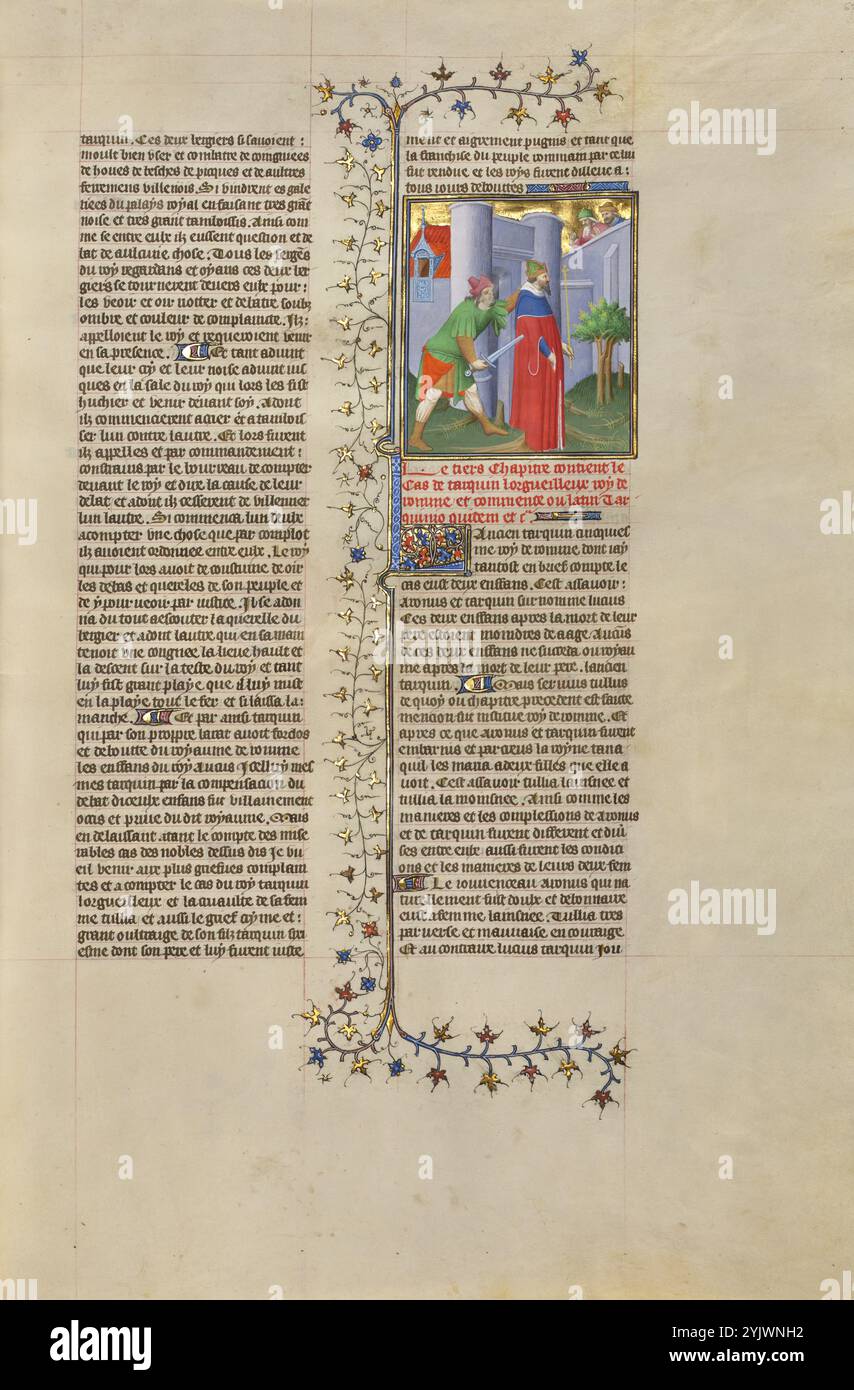 tarquin. Ces deux bergiers si savoient :
moult bien vser et combatre de coingniees
de houes de besches de picques et de aultres
ferremens villenois. Si vindrent es gale
ries du palays royal en faisant tres grāt
noise et tres grant tambloissis. Ainsi com
me se entre eulx ilz eussent question et de
bat de aulcune chose. Tous les sergēs
du roy regardans et oyans ces deux ber
giers se tournerent devers eulx pour :
les veoir et oir notter et debatre soubz
ombre et couleur de complaincte. Ilz :
appelloient le roy et requeroient venir
en sa presence. Et tant advint
que leur cry et leur noise advint ius
ques en la sale du roy qui lors les fist
huchier et venir devant soy. Adont
ilz commencierent a crier et a
ser lun contre laultre. Et lors furent
ilz appelles et par commandement :
constrains par le bourreau de compter
devant le roy et dire la cause de leur
debat et adont ilz cesserent de villenner
lun laultre. Si commenca lun deulx
a compter vne chose que par complot
ilz avoient ordonnee entre eulx. Le roy
qui pour lors avoit de coustume de oir
les debas et quereles de son peuple et
de y pourveoir par iustice. Il se adon
na du tout a escouter la querelle du
bergier et adont laultre qui en sa main
tenoit vne congnee la lieve hault et
la descent sur la teste du roy et tant
luy fist grant playe que il luy mist
en la playe tout le fer et si laissa la :
manche. Et par ainsi tarquin
qui par son propre barat avoit fordos
et deboutte du royaume de romme
les enffans du roy Ancus Icelluy mes
mes tarquin par la compensacion du
debat diceulx enfans fut villainement
occis et prive du dit royaume. Mais
en delaissant atant le compte des mise
rables cas des nobles dessus dis Je vu
eil venir aux plus griefves complain
tes et a compter le cas du roy tarquin
lorgueilleux et la cruaulte de sa fem
me tullia et aussi le grief cryme et :
grant oultraige de son filz tarquin sex
esme dont son pere et luy furent iuste
ment et aigrement pugnis et tant que
la franchise du peuple rommain par ce lui
fut rendue et les roys furent dilleuc a :
tous iours deboutes
Le tiers Chapitre contient le
Cas de tarquin lorgueilleux roy de
romme et commence ou latin Tar
quinio quidem et c̄.
Ancien tarquin cincquies
me roy de romme dont iay
tantost en brief compte le
cas eust deux enffans. Cest assavoir :
Aronus et tarquin surnomme lucius
Ces deux enffans apres la mort de leur
pere estoient moindres de aage Aucūs
de ces deux enffans ne succeda ou royau
me apres la mort de leur pere lancien
tarquin. Mais servius tullius
de quoy ou chapitre precedent est faicte
mencion fut institue roy de romme. Et
apres ce que Aronus et tarquin furent
embarnis et parcreus la royne tana
quil les maria a deux filles que elle a
voit. Cest assavoir tullia laisnee et
tullia la moinsnee. Ainsi comme les
manieres et les complessions de Aronus
et de tarquin furent different et diū
ses entre eulx aussi furent les condici
ons et les manieres de leurs deux fem
Le iouvenceau Aronus qui na
turelement fust doulx et debonnaire
eut a femme laisnee. Tullia tres
perverse et mauvaise en couraige
Et au contraire lucius tarquin iou
alamy
alamy
Image ID: 2YJWNH2
www.alamy.com